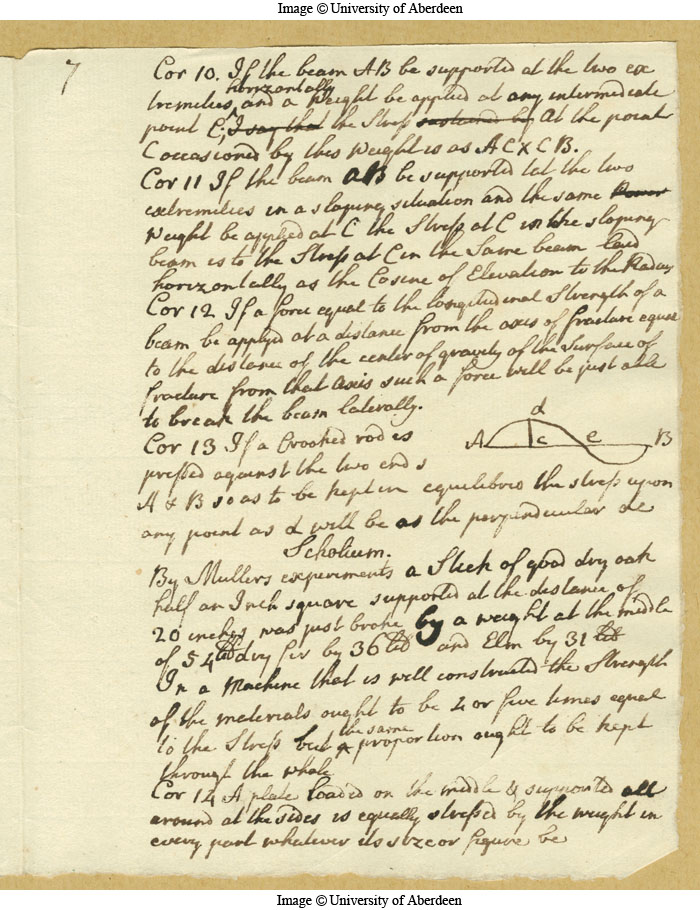 Image © University of Aberdeen
7
Cor 10. If the beam AB be supported at the two ex
horizontally
tremities, and a Weight be applied at any intermediate
point C; I say that the Stress sustained by At the point
C occasioned by this Weight is as AC × CB.
Cor 11 If the beam AB be supported tat the two
extremities in a sloping situation and the same Power
Weight be applied at C the Stress at C in the sloping
beam is to the Stress at C in the Same beam laid
horizontally as the Cosine of Elevation to the Radius
Cor 12 If a force equal to the longitudinal Strength of a
beam be applied at a distance from the axis of fracture equal
to the distance of the center of gravity of the Surface of
fracture from that axis such a force will be just able
to break the beam laterally.
d
A c e B
Cor 13 If a Crooked rod is
pressed against the two ends
A & B so as to be kept in equilibrio the stress upon
any point as d will be as the perpendicular dc
Scholium.
By Mullers experiments a Stick of good dry oak
half an Inch square supported at the distance of
20 inches was just broke by a weight at the middle
of 54 lib dry fir by 36 lib and Elm by 31 lib
In a Machine that is well constructed the Strength
of the materials ought to be 4 or five times equal
the same
to the Stress but a proportion ought to be kept
through the whole
Cor 14 A plate loaded on the middle & supported all
around at the sides is equally stressed by the weight in
every part whatever its size or figure be
Image © University of Aberdeen